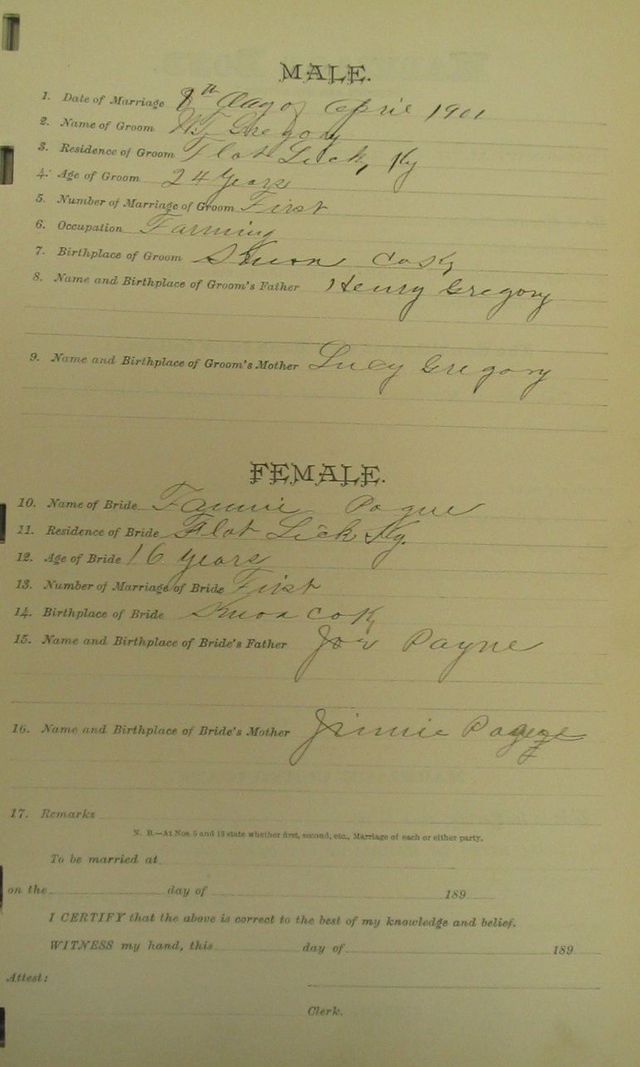 MALE.
1. Date of Marriage 8th day of April 1901
2. Name of Groom Gregory
3. Residence of Groom Flat Lick, Ky
4. Age of Groom 24 years
5. Number of Marriage of Groom First
6. Occupation Farming
7. Birthplace of Groom Knox Co Ky
8. Name and Birthplace of Groom's Father Henry Gregory
9. Name and Birthplace of Groom's Mother Lucy Gregory
FEMALE.
10. Name of Bride Fannie
11. Residence of Bride Flat Lick Ky.
12. Age of Bride 16 years
13. Number of Marriage of Bride First
14. Birthplace of Bride Knox Co Ky
15. Name and Birthplace of Bride's Father Joe Payne
16. Name and Birthplace of Bride's Mother Jinnie
17. Remarks
N. B.—At Nos. 5 and 13 state whether first, second, etc., Marriage of each or either party.
To be married at
on the day of 189
I CERTIFY that the above is correct to the best of my knowledge and belief.
WITNESS my hand, this day of 189
Attest:
Clerk.